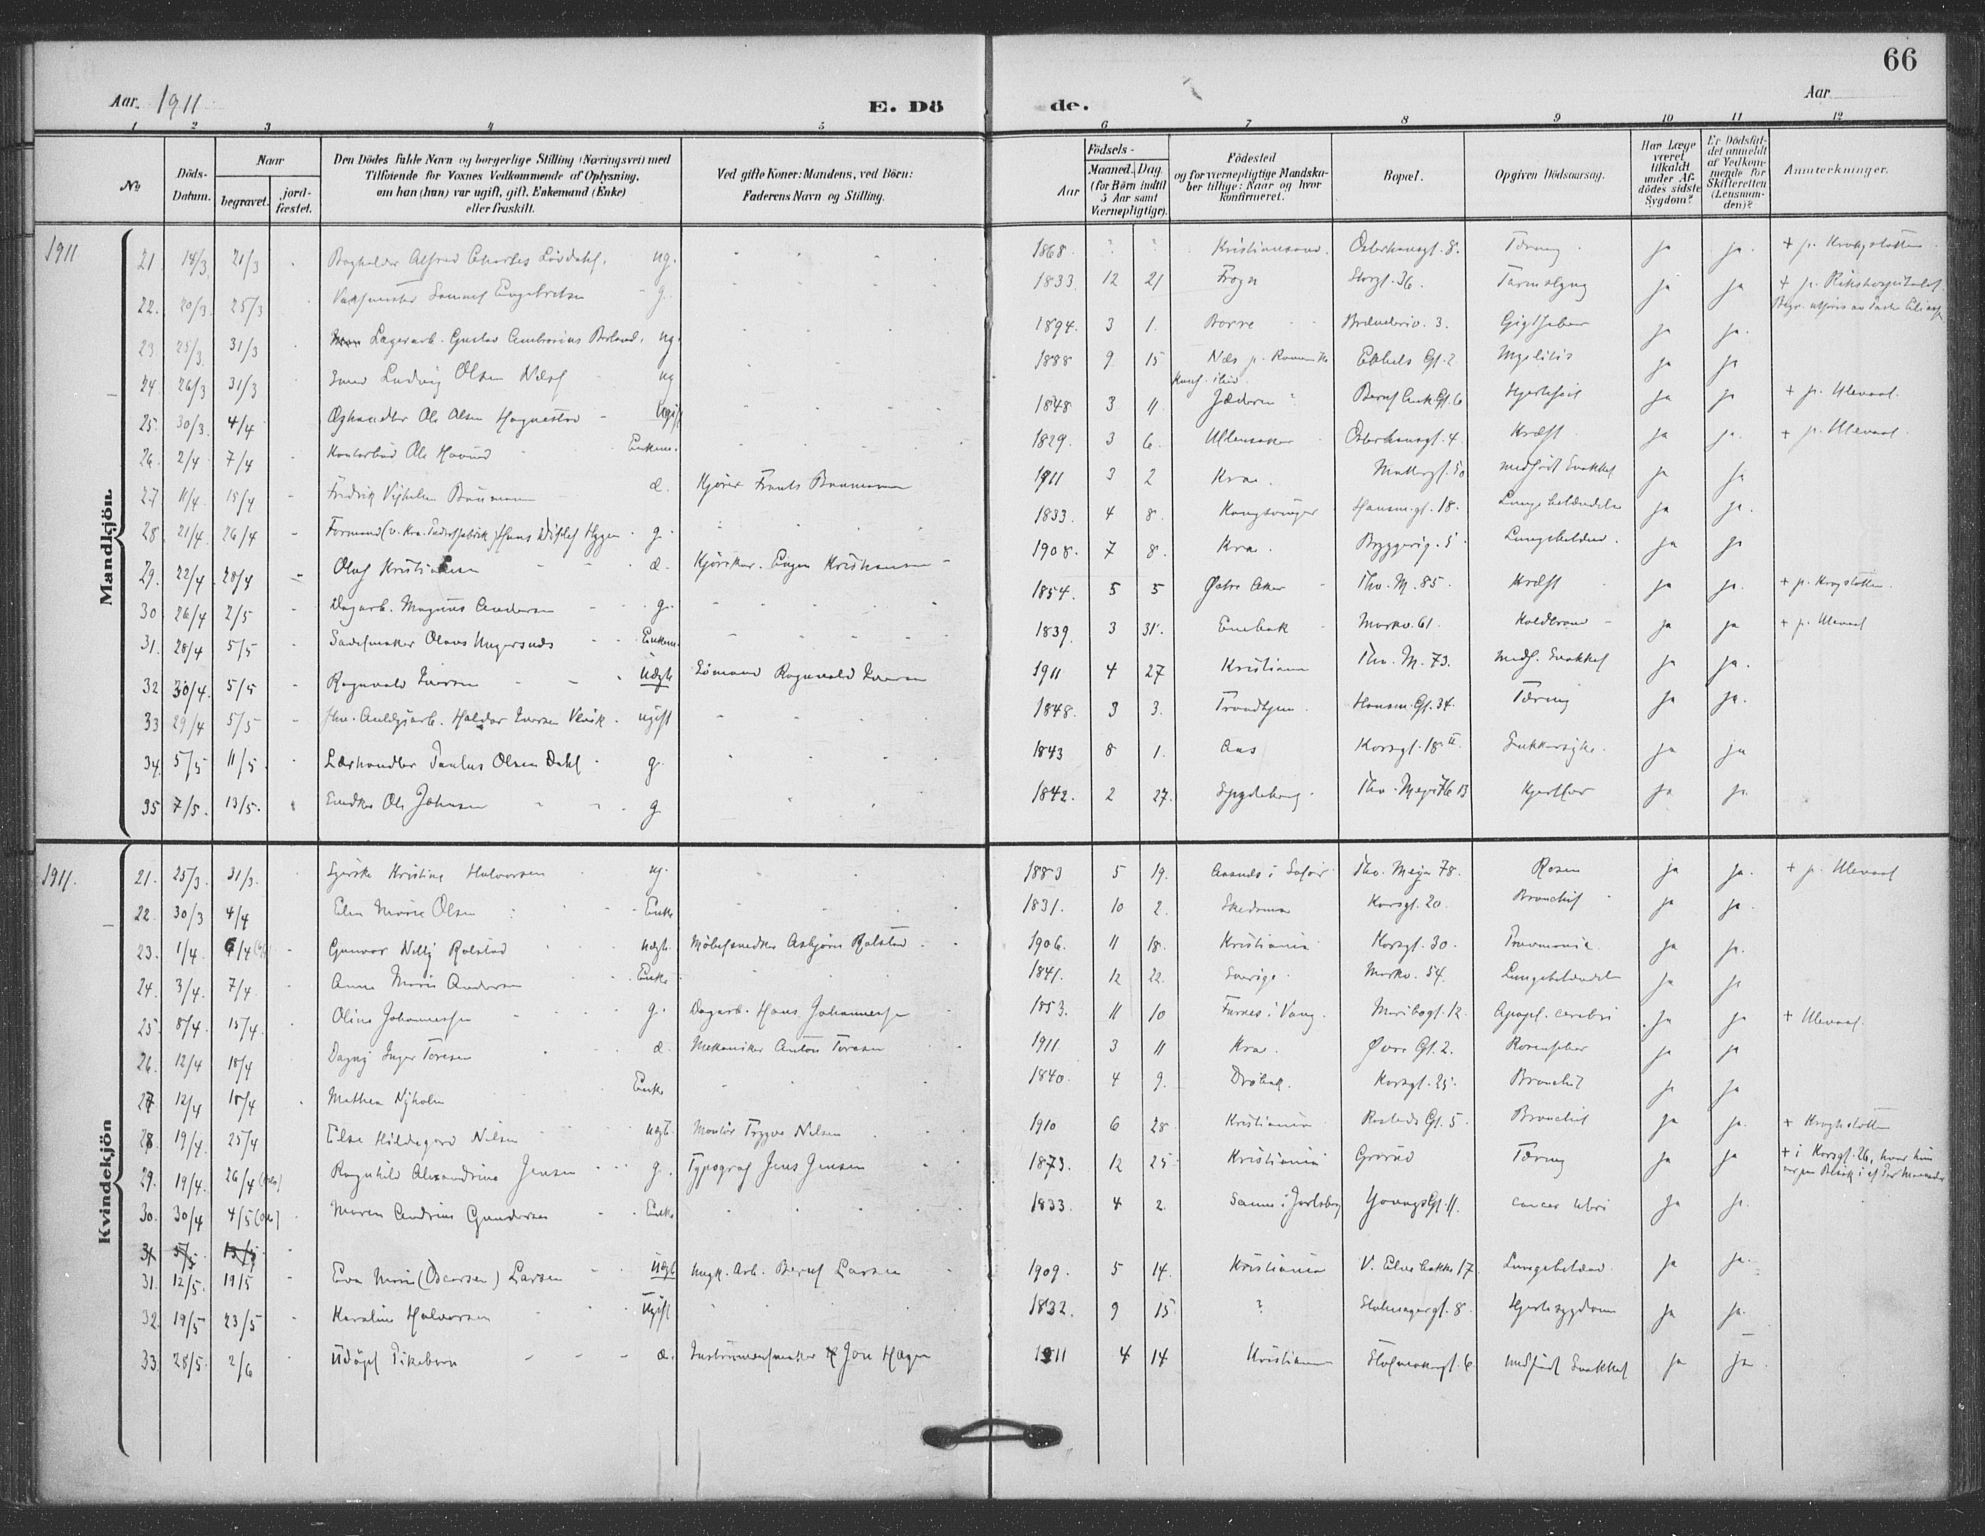 66
Aar. 1911
E. Dö
de.
Aar
1 2 3 4 5 6 7 8 9 10 11 12
No
Döds-Datum.
Naar
begravet.
jord-fæstet.
Den Dödes fulde Navn og borgerlige Stilling (Næringsvei) med
Tilföiende for Voxnes Vedkommende af Oplysning,
om han (hun) var ugift, gift, Enkemand (Enke)
eller fraskilt.
Ved gifte Koner: Mandens, ved Börn:
Faderens Navn og Stilling.
Födsels-
Aar
Maaned. Dag.
(for Börn indtil
5 Aar samt
Værnepligtige).
Födested
og for værnepligtige Mandska-
ber tillige: Naar og hvor
konfirmeret.
Bopæl.
Opgiven Dödsaarsag.
Har Læge
været
tilkaldt
under Af-
dödes sidste
Sygdom?
Er Dödsfal-
det anmeldt
af Vedkom-
mende for
Skifteretten
(Lensman-
den)?
Anmærkninger.
1911
Mandkjön.
21. 14/3 21/3 Bogholder Alfred Charles Lövdahl. ug. 1868. ? ? Kristiansand. Osterhausgt. 8. Tæring. ja ja. + p. Krohgstøtten
22. 20/3 25/3 Samuel Engebretsen g. 1833. 12 21 Frogn Storgt. 36. ja ja + p. Rikshospitalet.
23 25/3 31/3 Lagerarb. Gustav Ambrosius ug. 1894. 3 1. Borre 3. Gigtfeber ja ja.
24. 26/3 31/3 Smed Ludvig Olsen Næss ug 1888 9 15 Næs p. Romerike Ebbels Gt. 2 Myelitis ja ja
25. 30/3. 4/4 Ole Olsen Hognestad ugift 1848 3 11 Jæderen ? Bernt Ank. Gt. 6 Hjertefeil ja ja + p. Ullevaal.
26. 2/4 7/4 Kontorbud Ole Enkem. 1829. 3 6. Ullensaker Osterhausgt. 4. Kræft ja ja. + p. Ullevaal.
27 11/4. 15/4 Fredrik Vilhelm Baumann æ. Kjører Frants Baumann 1911 3 2 Kra. Møllergt. 50 medfødt Svakhet ja ja
28. 21/4. 26/4 Formand Hans Ditlef g. 1833. 4 8. Kongsvinger Hausm. gt. 18. Lungebetændelse ja ja.
29. 22/4. 28/4 Olaf Kristiansen æ. Kjørekar. Eugen Kristiansen 1908. 7 8. Kra. Bryggerig. 5 Lungebetænd. ja ja
30 26/4 2/5 Dagarb. Magnus Andersen g. 1854. 5 5 Østre Aker Thv. M. 85. Kræft ja ja. + p. Krogstøtten.
31. 28/4 5/5 Sadelmaker Olaus Enkem. 1839. 3 31. Enebak Markv. 61. Koldbrand ja ja + p. Ullevaal
32 30/4. 5/5 Ragnvald Iversen uægte Sømand Ragnvald Iversen 1911 4 27 Kristiania Thv. M. 73. medf. Svakhet ja ja.
33 29/4 5/5 Haldor Iversen ugift 1848. 3 3. Trondhjem. Hausm. Gt. 34. Tæring ja ja
34. 5/5 11/5. Lærhandler Paulus Olsen Dahl g. 1843 8 1. Aas Korsgt. 18 II. Sukkersyke. ja ja
35 7/5. 13/5. Snedker Ole Johnsen g 1842. 2 27. Spydeberg Thv. Meyers Gt. 13 ja ja.
1911.
Kvindekjön
21. 25/3. 31/3. Syerske Kristine Halvorsen ug. 1883 5 19. Aasnes i Solør Thv. Meyer 78. Rosen ja ja. + p. Ullevaal
22. 30/3 4/4 Elen Marie Olsen Enke 1831. 10 2. Skedsmo Korsgt. 20 Bronchit ja ja.
23. 1/4. 6/4 Gunvor Nelly Rolstad uægte Møbelsnedker Asbjørn Rolstad 1906. 11 18. Kristiania Korsgt. 30. Pneumonie ja ja.
24. 3/4. 7/4. Anne Marie Andersen Enke 1841. 12 22. Sverige. Markv. 54. Lungebetændelse ja ja
25. 8/4. 15/4. Oline Johannessen g. Dagarb. Hans Johannessen 1853. 11 10 Furnes i Vang. Maribogt. 12 Apopl. cerebri ja ja + Ullevaal.
26. 12/4 18/4 Dagny Inger Toresen æ. Mekaniker Anton Toresen 1911 3 11 Kra. Øvre Gt. 2. Rosenfeber ja ja
27 12/4 18/4 Mathea Nyholm Enke 1840. 4 9. Drøbak. Korsgt. 25. Bronchit ja ja
28. 19/4. 25/4 Else Hildegard Nilsen uægt. Montør Trygve Nilsen 1910 6 28. Kristiania Rosteds Gt. 5 Bronchit ja ja. + Krohgstøtten
29. 19/4. 26/4 Ragnhild Alexandrine Jensen g. Typograf Jens Jensen 1873. 12 25 Kristiania Grorud Tæring ja ja + i Korsgt. 26, hvor hun
var paa Besøk i et Par Maaneder
30. 30/4 4/5 Maren Andrine Gundersen Enke 1833. 4 2. Sanne i Jarlsberg Youngs Gt. 11. cancer uteri ja ja.
31. 12/5. 19/5 Eva Marie (Oscarsen) Larsen uægte Larsen 1909. 5 14. Kristiania V. Elvebakke 17. Lungebetænd. ja ja.
32. 19/5 23/5 Karoline Halvorsen ugift 1832. 9 15 ? Stolmagergt. 8. Hjertesygdom ja ja.
33. 28/5. 2/6 Udøpt Pikebarn æ. Instrumentmaker Jon Hagen 1911 4 14 Kristiania Stolmakergt. 6 medfødt Svakhet ja ja.